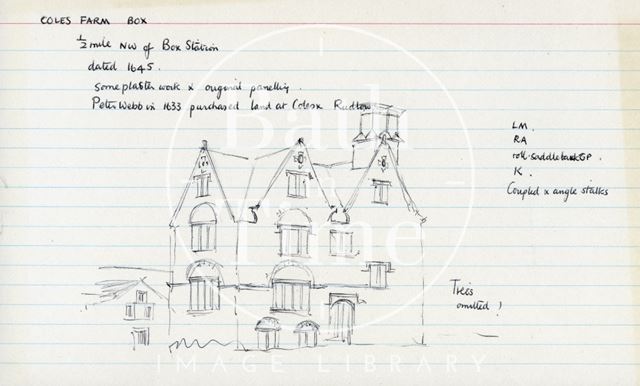 COLES FARM BOX
½ mile NW of Box Station
dated 1645.
some plaster work x original panelling.
Peter Webb in 1633 purchased land at Coles x Rudlow
LM.
RA
roll-saddlebackGP.
K.
Coupled x angle stalks
Trees
omitted!
Bath
in
Time
IMAGE LIBRARY